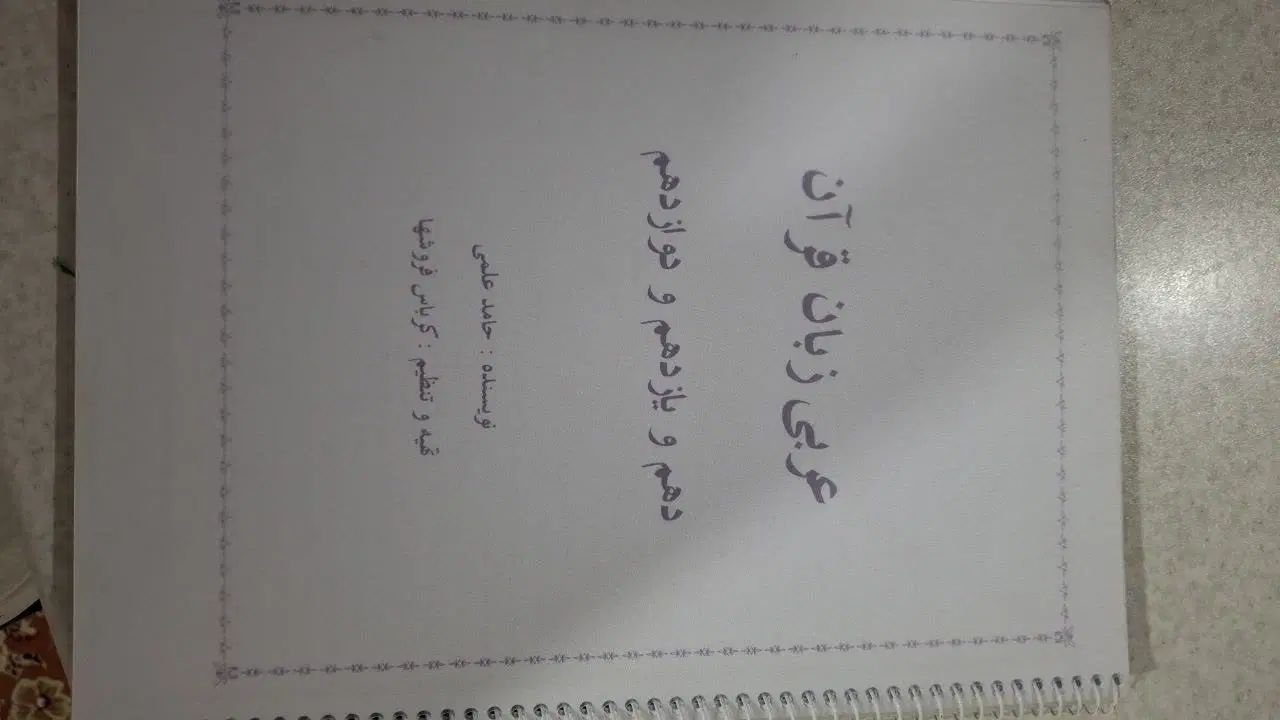 عربی زبان قرآن
دهم و یازدهم و دوازدهم
نویسنده : حامد علمی
تهیه و تنظیم : کرباس فروشها